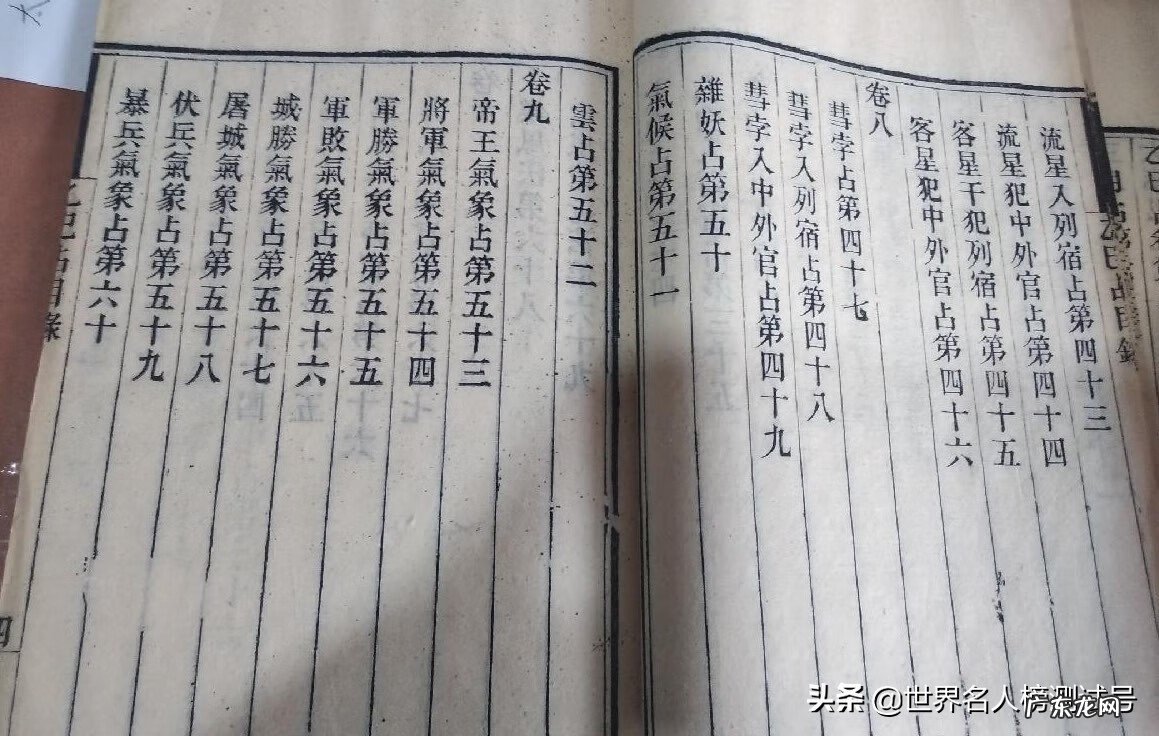 流星入列宿占第四十三
流星犯中外官占第四十四
客星干犯列宿占第四十五
客星犯中外官占第四十六
卷八
彗孛占第四十七
彗孛入列宿占第四十八
彗孛入中外官占第四十九
雜妖占第五十
氣候占第五十一
雲占第五十二
卷九
帝王氣象占第五十三
將軍氣象占第五十四
軍勝氣象占第五十五
軍敗氣象占第五十六
城勝氣象占第五十七
屠城氣象占第五十八
伏兵氣象占第五十九
暴兵氣象占第六十
乙巳占目錄
四
头条 @世界名人榜测试号
广东龙网